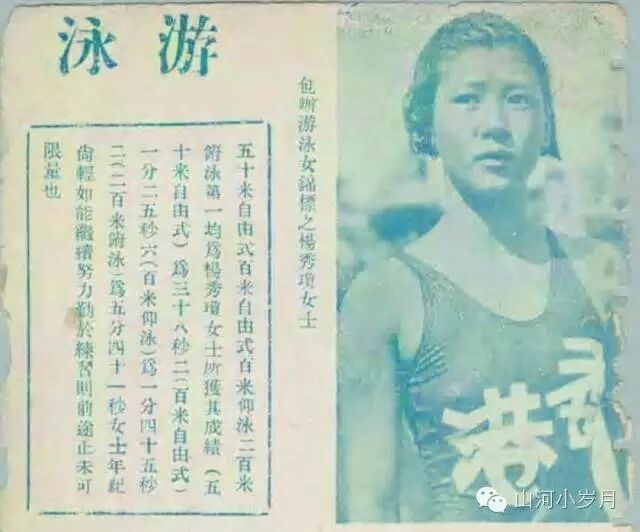 游泳
包辦游泳女錦標之楊秀瓊女士
五十米自由式百米自由式百米仰泳二百米
俯泳第一均爲楊秀瓊女士所獲其成績(五
十米自由式)爲三十八秒二(百米自由式)
一分二五秒六(百米仰泳)爲一分四十五秒
二(二百米俯泳)爲五分四十一秒女士年紀
尙輕如能繼續努力勤於練習則前途正未可
限量也
港
山河小岁月